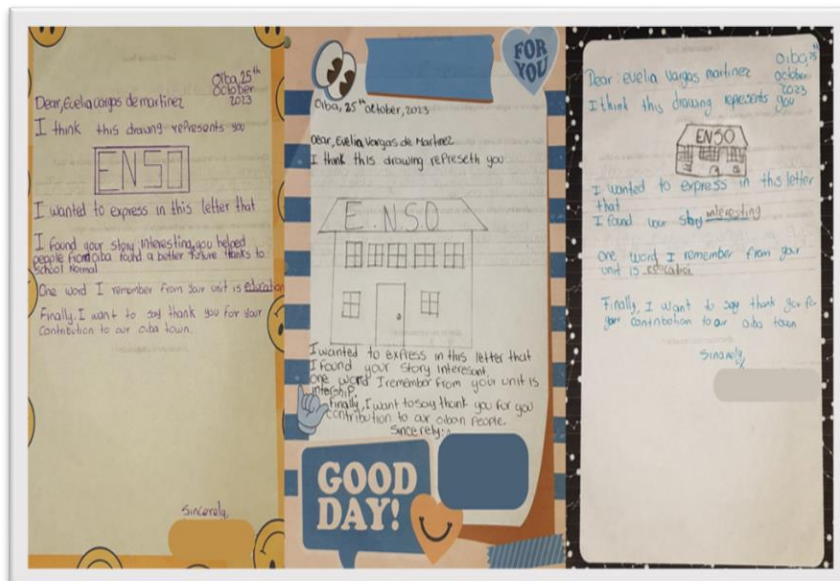 Oiba 25th
October
2023
Dear, Evelia vargas de martinez
I think this drawing represents you
ENSO
I wanted to express in this letter that
I found your story interesting, you helped
people from oiba found a better future thanks to
school Normal
One word I remember from your unit is education
Finally, I want to say thank you for your
contribution to our oiba town.
Sincerely,
FOR
YOU
Oiba, 25th October, 2023
Dear, Evelia Vargas de Martinez
I think this drawing represeth you
E.N.S.O
I wanted to express in this letter that
I found your story interesant,
one word I remember from your unit is
intership.
Finally, I want to say thank you for you
contribution to our oiban people.
Sincerely:
GOOD
DAY!
Oiba, 25th
October
2023
Dear: evelia vargas martinez
I think this drawing represents you
ENSO
I wanted to express in this letter
that
I found your story interesting
one word I remember from your
unit is education
Finally, I want to say thank you for
your contribution to our oiba town
Sinarely,